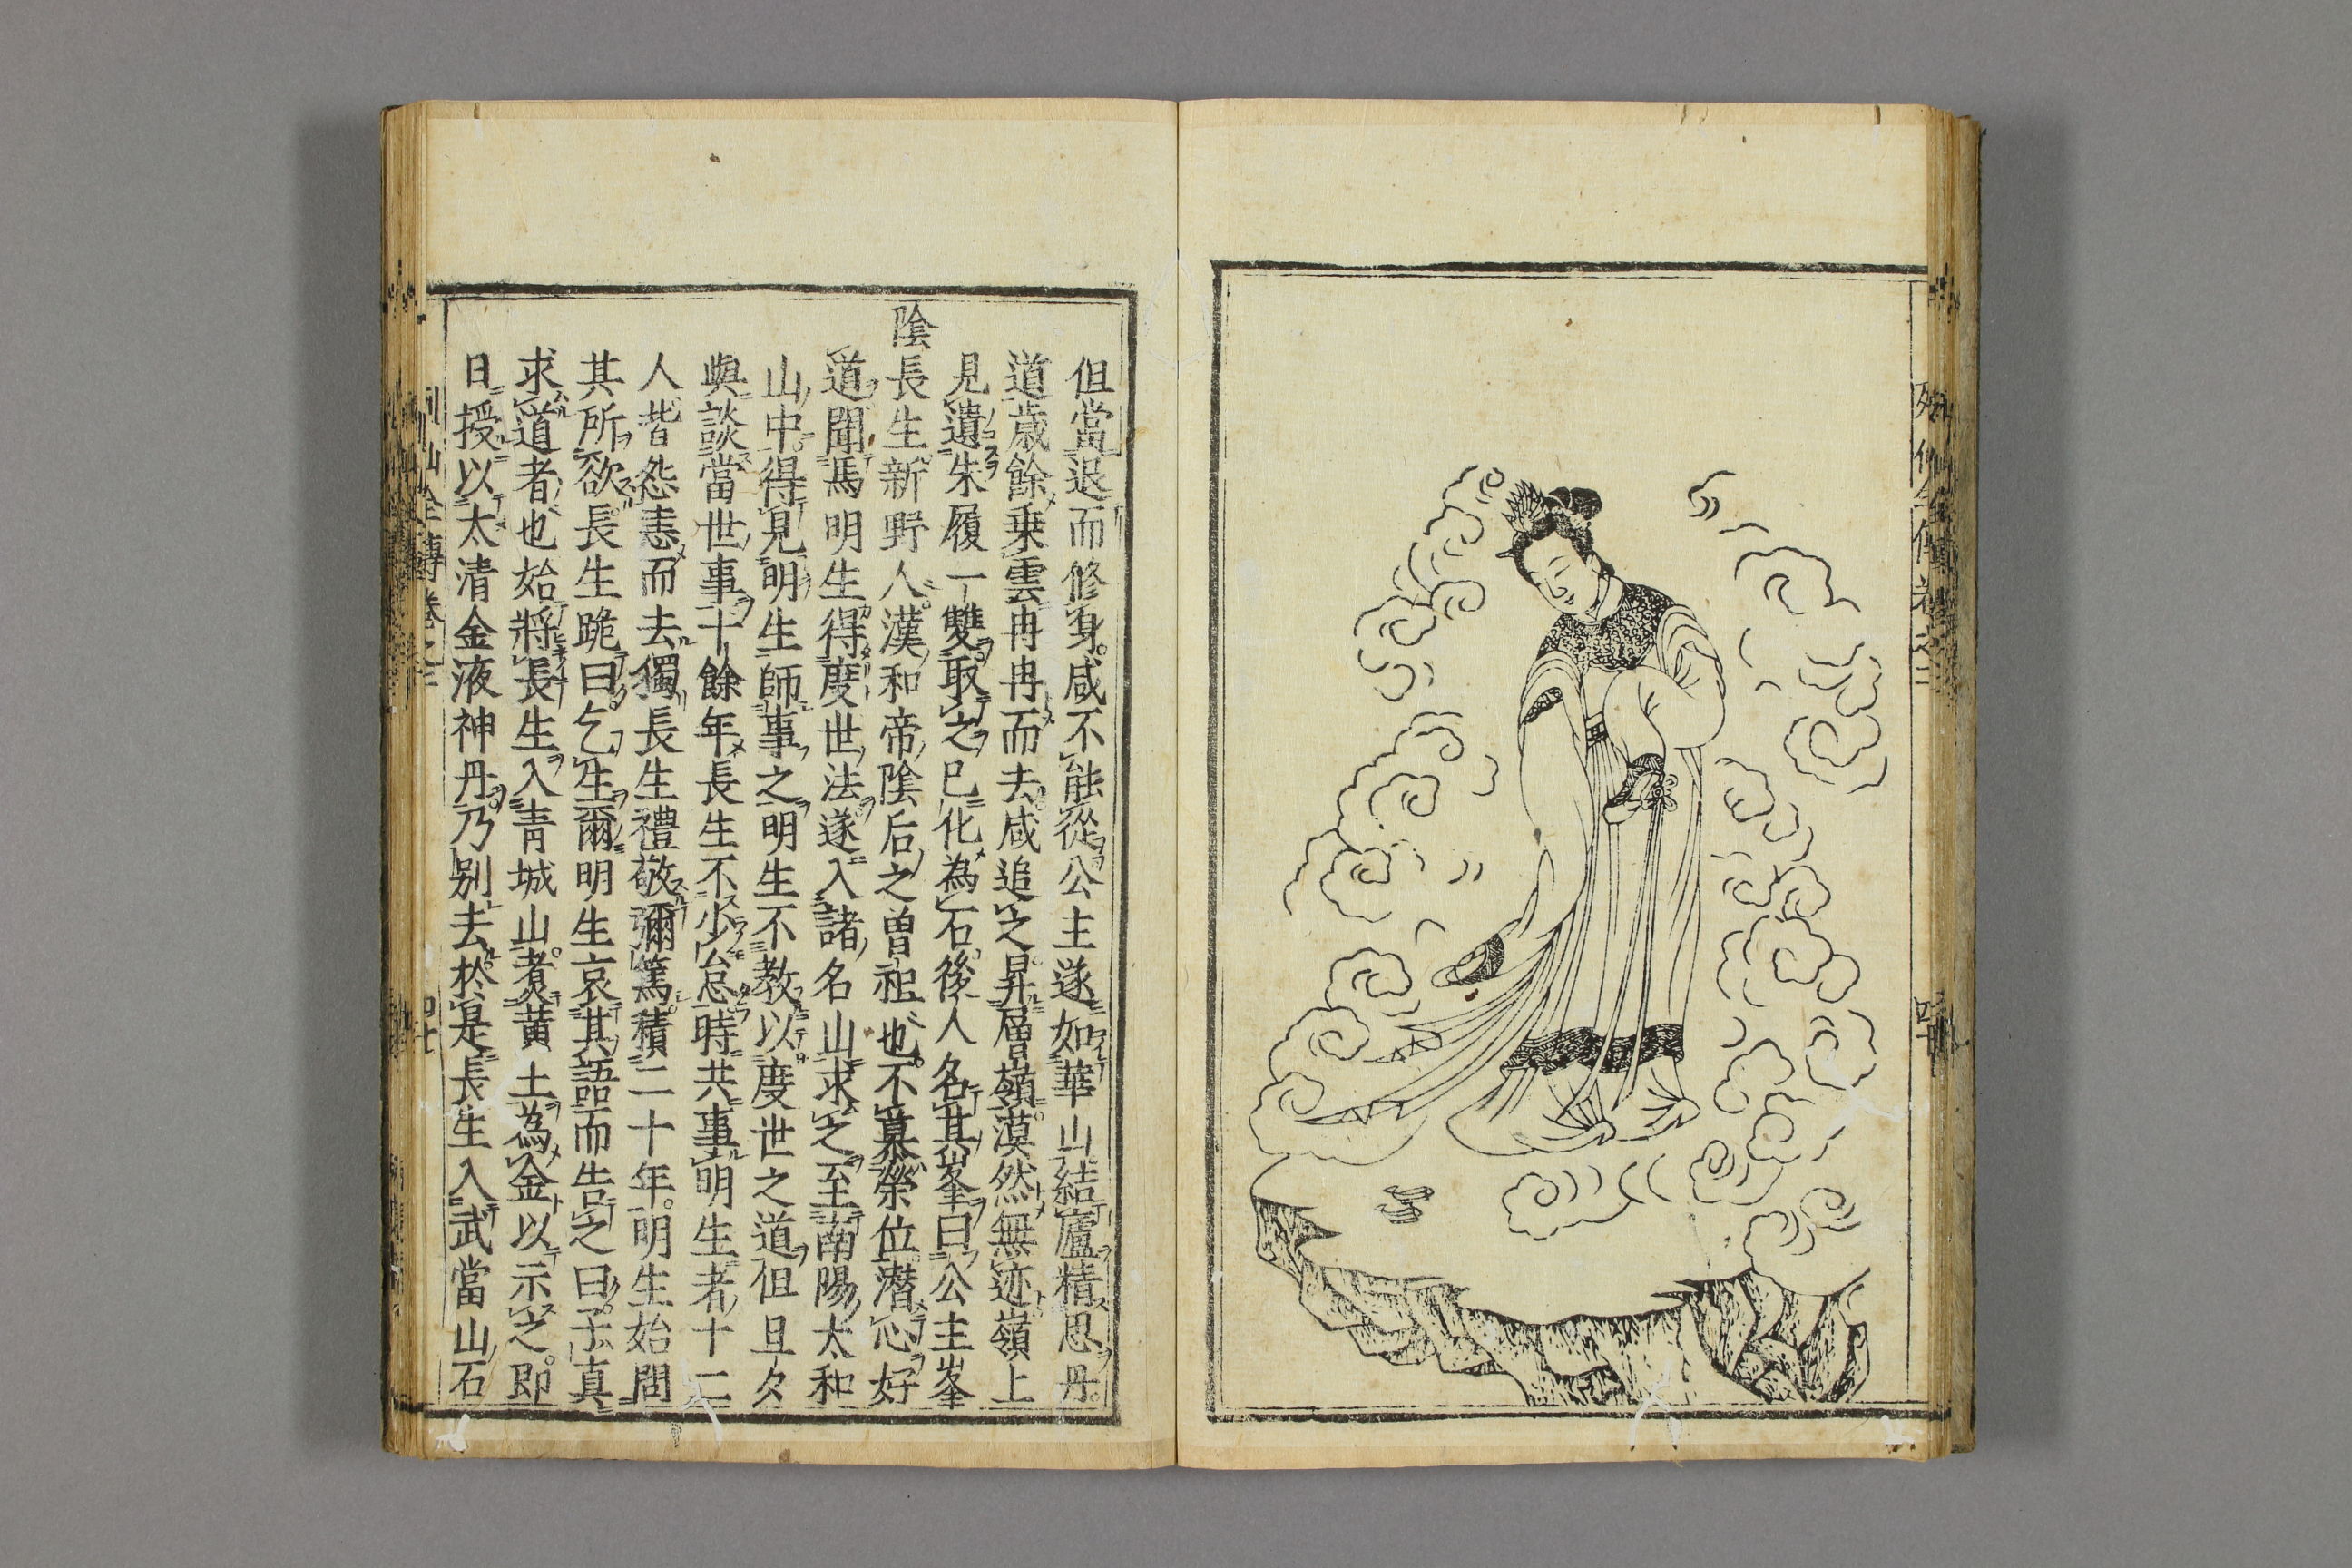 但當退而修身咸不能從公主遂如華山結廬精思丹
道歲餘乗雲冉冉而去咸追之昇層嶺漠然無迹嶺上
見遺朱履一雙取之已化為石後人名其峯曰公主峯
陰長生新野人漢和帝陰后之曽祖也不慕榮位潜心好
道聞馬明生得度世法遂入諸名山求之至南陽太和
山中得見明生師事之明生不教以度世之道但旦夕
與談當世事十餘年長生不少怠時共事明生者十二
人皆怨恚而去獨長生禮敬彌篤積二十年明生始問
其所欲長生跪曰乞生爾明生哀其語而告之曰子真
求道者也始將長生入青城山煮黄土為金以示之即
日授以太清金液神丹乃别去於是長生入武當山石